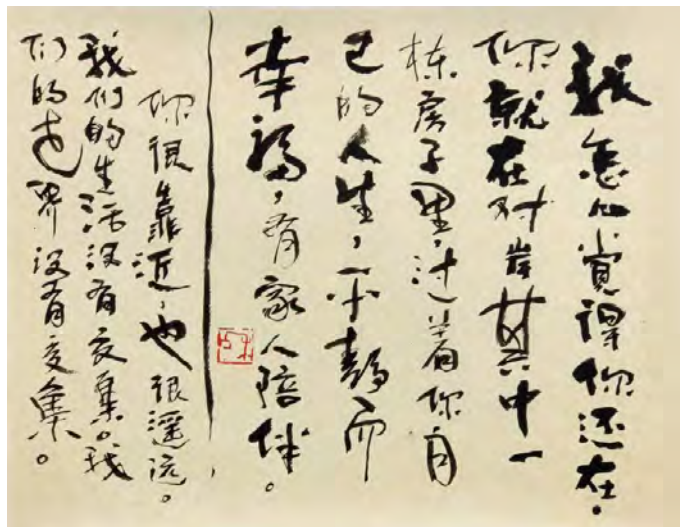 我怎么觉得你还在。
你就在对岸其中一
栋房子里,过着你自
己的人生,平静而
幸福,有家人陪伴。
你很靠近,也很遥远。
我们的生活没有交集。我
们的世界没有交集。